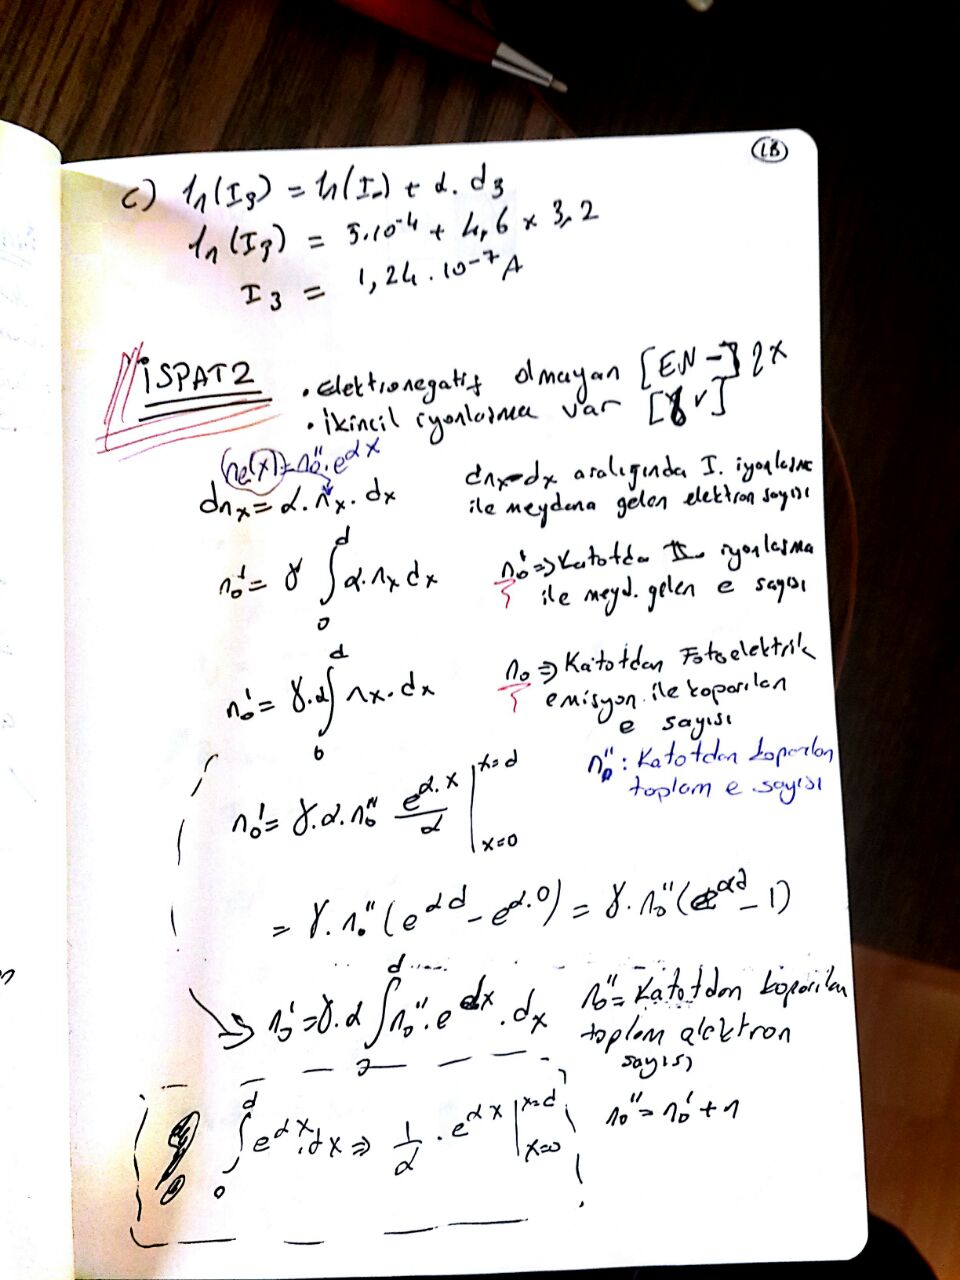 18
c) ln(I3) = ln(I0) + α. d3
ln(I3) = 5.10⁻⁴ + 4,6 x 3,2
I3 = 1,24.10⁻⁷ A
İSPAT2
• Elektronegatif olmayan [EN -] 2x
• İkincil iyonlaşma var [γ v]
ne(x) = n0''.e^αx
dnx = α. nx. dx
dnx → dx aralığında I. iyonlaşma
ile meydana gelen elektron sayısı
n0' = γ ∫₀ᵈ α. nx dx
n0' => Katotda II iyonlaşma
ile meyd. gelen e sayısı
n0' = γ.α ∫₀ᵈ nx. dx
n0 => Katotdan Fotoelektrik
emisyon ile koparılan
e sayısı
n0'' : Katotdan koparılan
toplam e sayısı
n0' = γ.α. n0'' e^α.x / α | x=d x=0
= γ. n0'' (e^αd - e^α.0) = γ. n0'' (e^αd - 1)
n0' = γ.α ∫₀ᵈ n0''. e^αx . dx
n0'' = Katotdan koparılan
toplam elektron
sayısı
n0'' = n0' + n
∫₀ᵈ e^αx.dx => 1/α . e^αx | x=d x=0